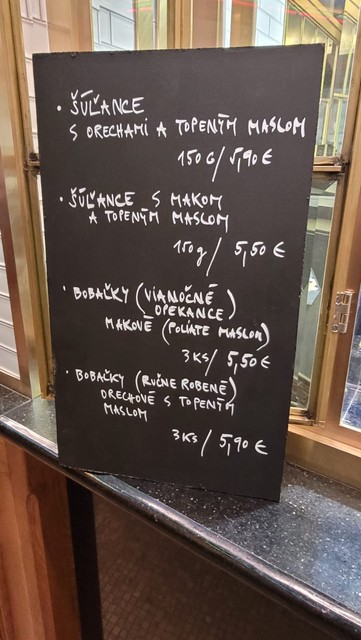 • ŠÚĽANCE
S ORECHAMI A TOPENÝM MASLOM
150 G / 5,90 €
• ŠÚĽANCE S MAKOM
A TOPENÝM MASLOM
150 g / 5,50 €
• BOBAĽKY (VIANOČNÉ
OPEKANCE)
MAKOVÉ (POLIATE MASLOM)
3 KS / 5,50 €
• BOBAĽKY (RUČNE ROBENÉ)
ORECHOVÉ S TOPENÝM
MASLOM
3 KS / 5,90 €